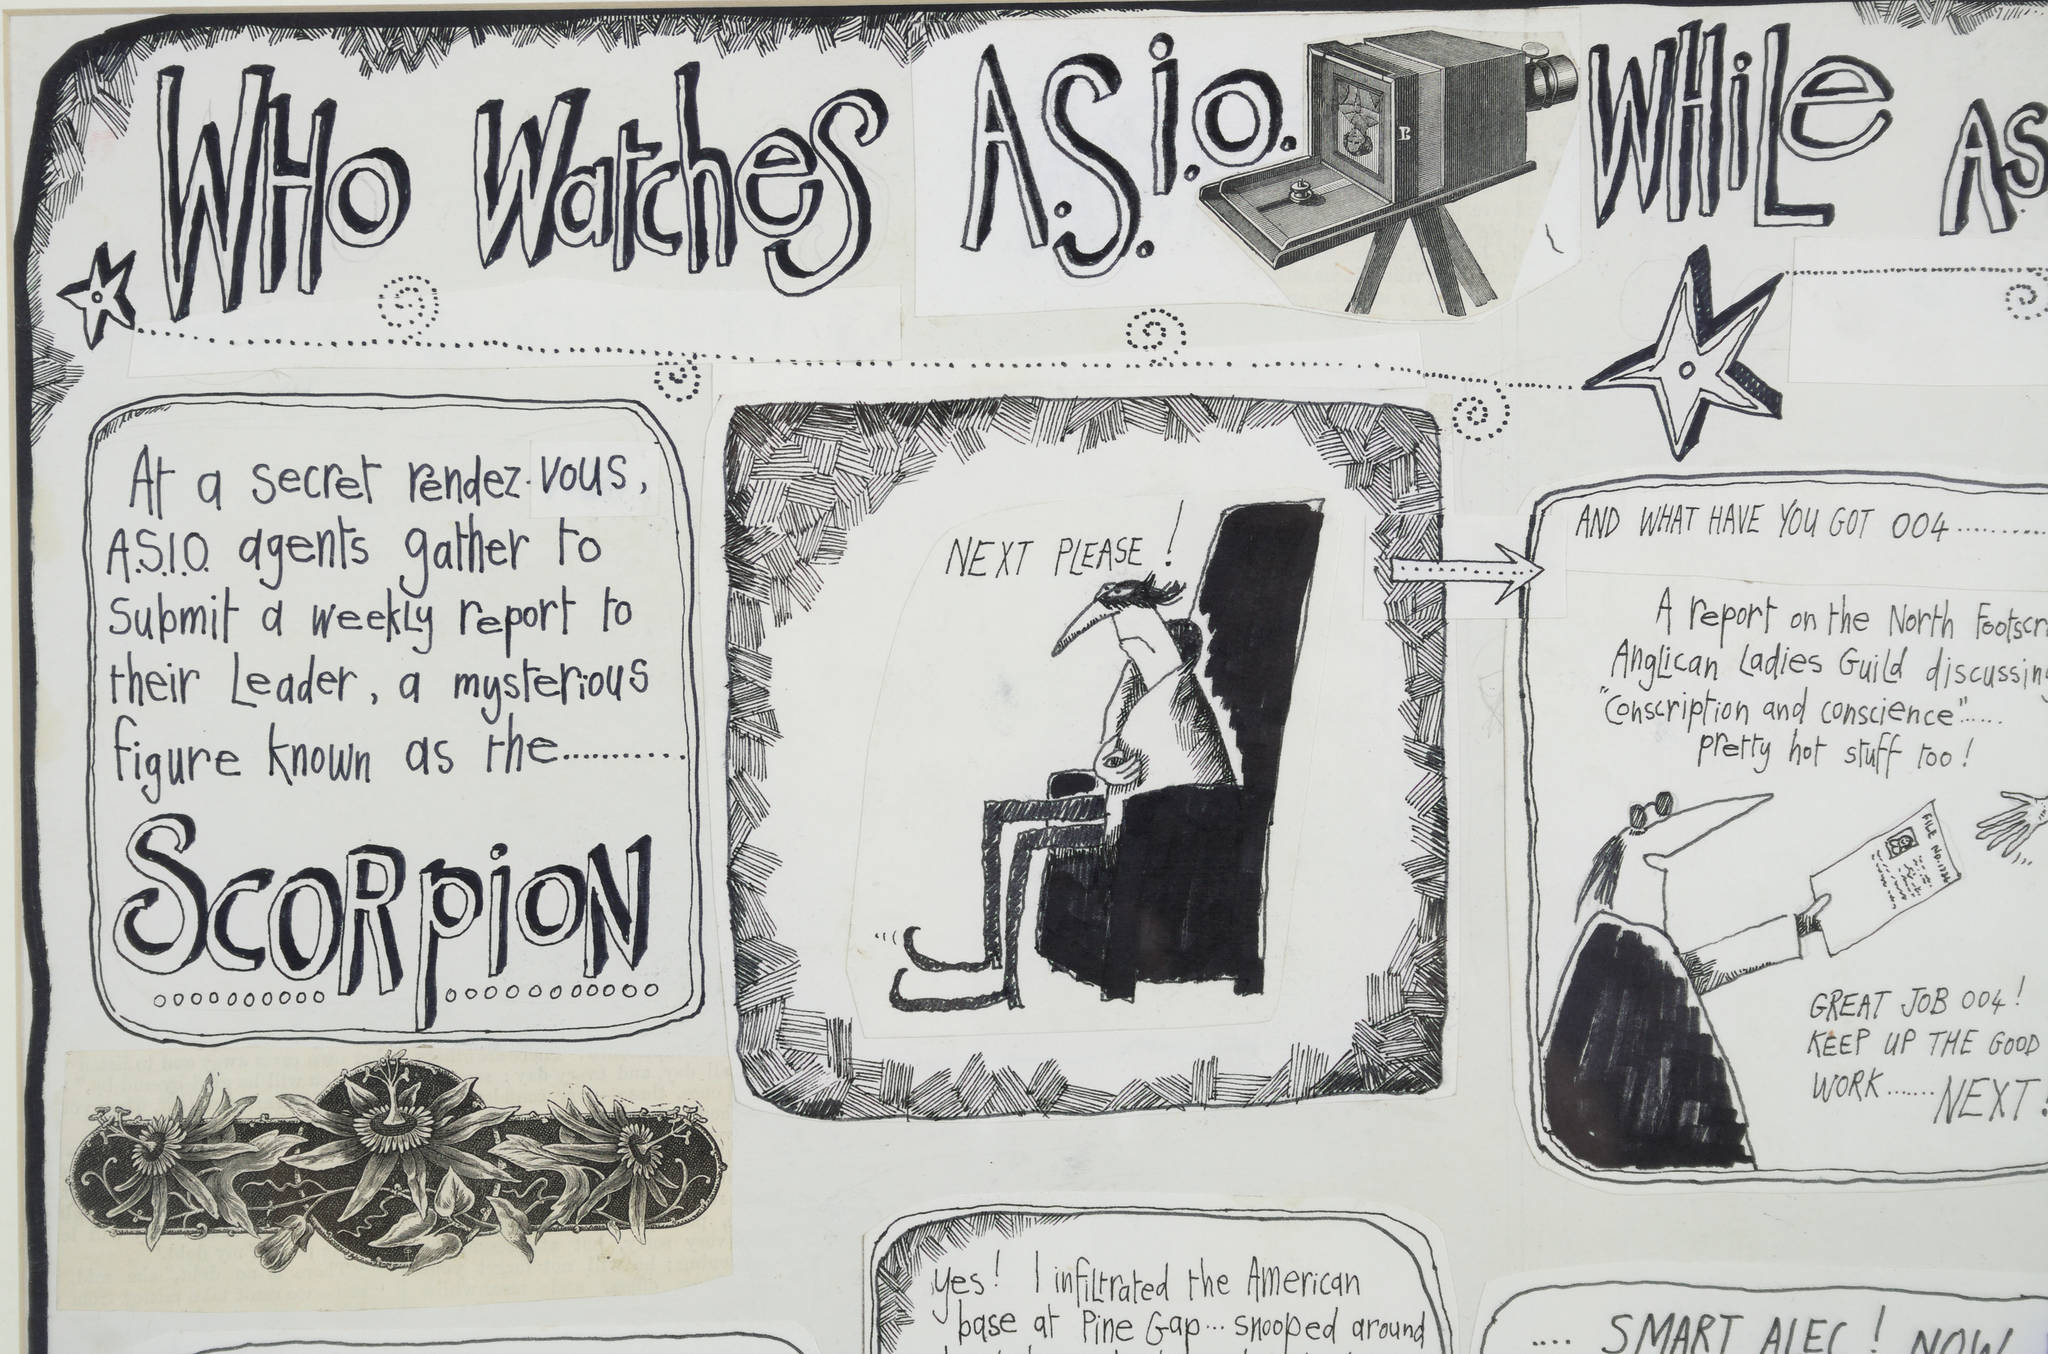 WHO Watches A.S.I.O. WHILE AS
At a secret rendez-vous,
A.S.I.O. agents gather to
submit a weekly report to
their Leader, a mysterious
figure known as the............
SCORpioN
NEXT PLEASE!
AND WHAT HAVE YOU GOT 004..............
A report on the North Footscr
Anglican Ladies Guild discussing
"Conscription and conscience"......
pretty hot stuff too!
FILE
GREAT JOB 004!
KEEP UP THE GOOD
WORK....... NEXT!
Yes! I infiltrated the American
base at Pine Gap... snooped around
.... SMART ALEC! NOW